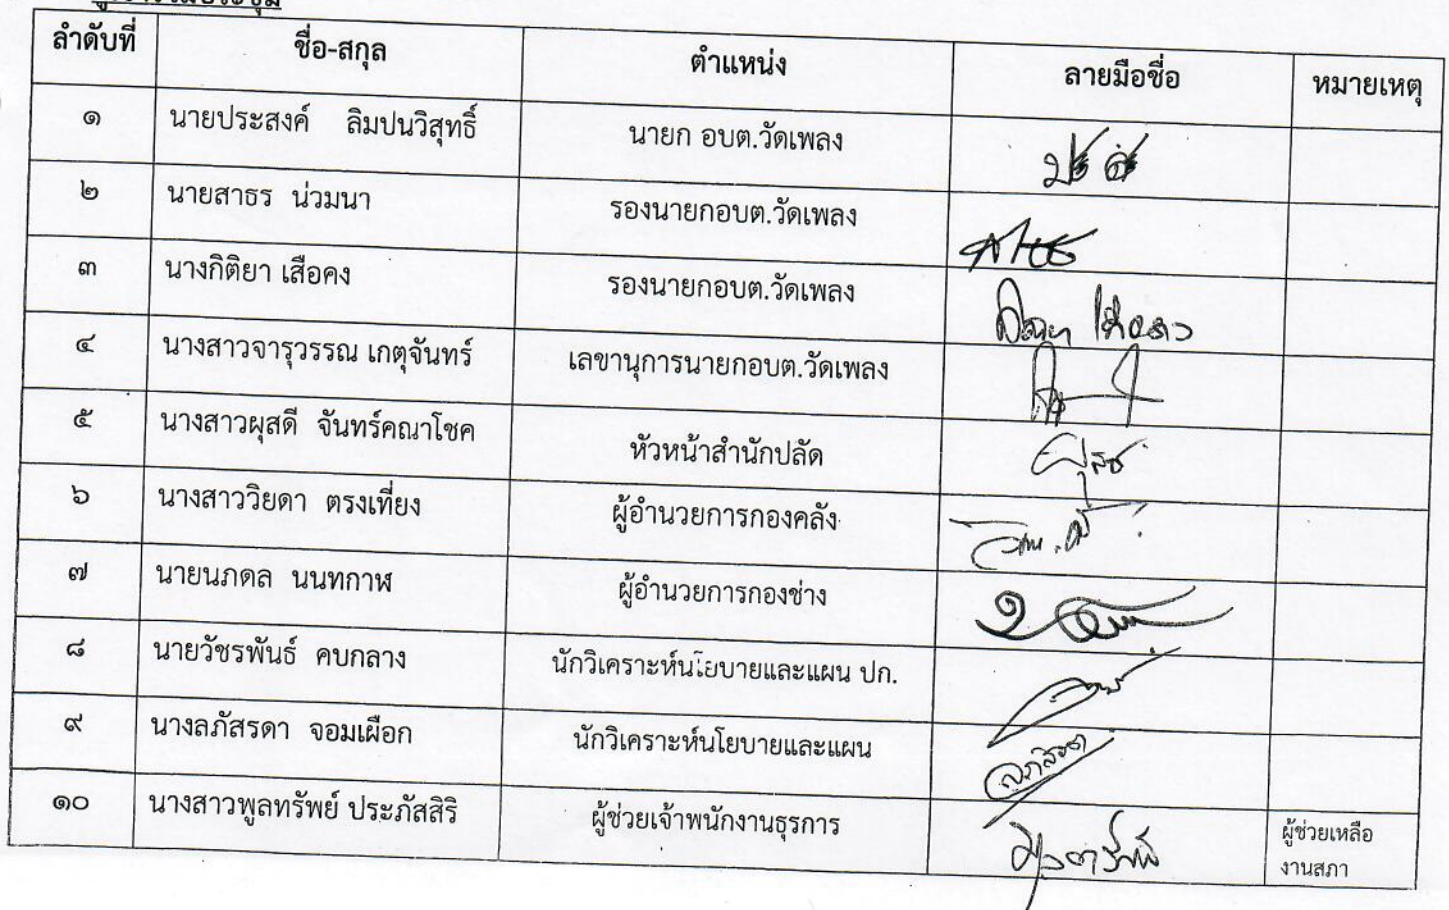 ลำดับที่ ชื่อ-สกุล ตำแหน่ง ลายมือชื่อ หมายเหตุ
๑ นายประสงค์ ลิมปนวิสุทธิ์ นายก อบต.วัดเพลง
๒ นายสาธร น่วมนา รองนายกอบต.วัดเพลง
๓ นางกิติยา เสือคง รองนายกอบต.วัดเพลง
๔ นางสาวจารุวรรณ เกตุจันทร์ เลขานุการนายกอบต.วัดเพลง
๕ นางสาวผุสดี จันทร์คณาโชค หัวหน้าสำนักปลัด
๖ นางสาววิยดา ตรงเที่ยง ผู้อำนวยการกองคลัง
๗ นายนภดล นนทกาฬ ผู้อำนวยการกองช่าง
๘ นายวัชรพันธ์ คบกลาง นักวิเคราะห์นโยบายและแผน ปก.
๙ นางลภัสรดา จอมเผือก นักวิเคราะห์นโยบายและแผน ลภัสรดา
๑๐ นางสาวพูลทรัพย์ ประภัสสิริ ผู้ช่วยเจ้าพนักงานธุรการ ผู้ช่วยเหลือ
งานสภา